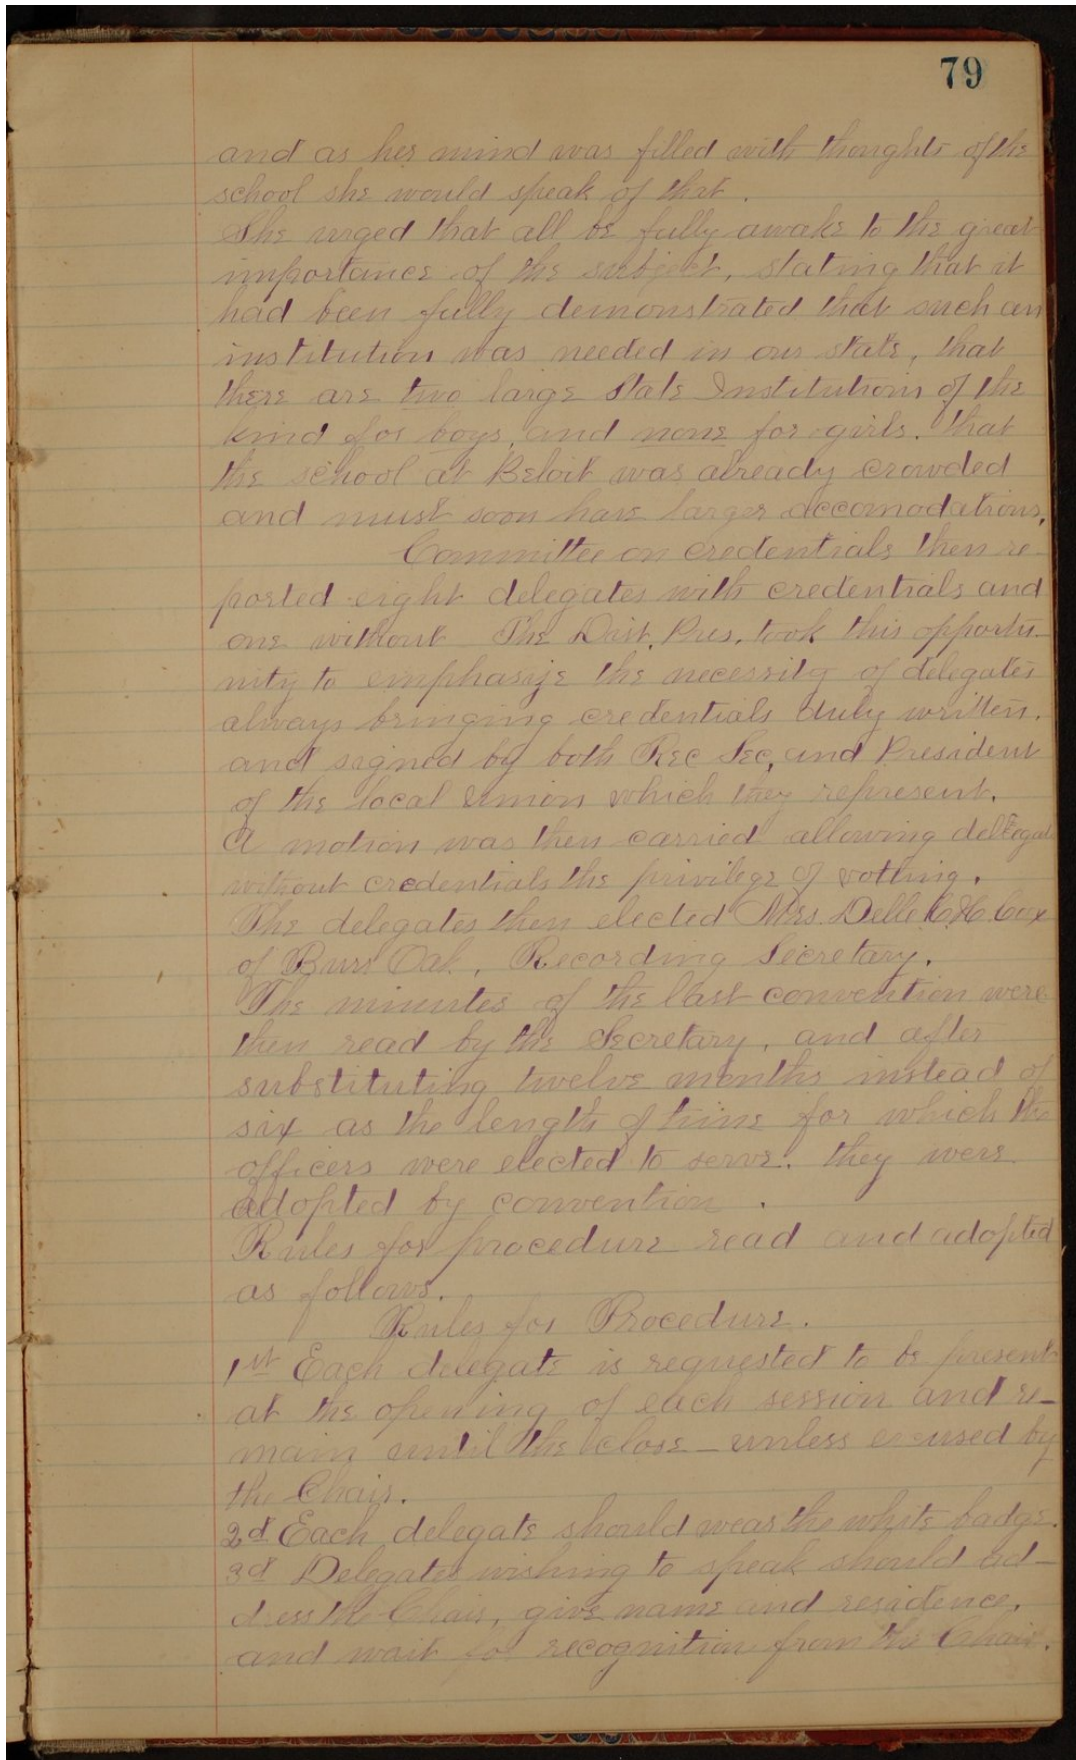 79
and as her mind was filled with thoughts of the
school she would speak of that.
She urged that all be fully awake to the great
importance of the subject, stating that it
had been fully demonstrated that such an
institution was needed in our state, that
there are two large State Institutions of the
kind for boys, and none for girls. That
the school at Beloit was already crowded
and must soon have larger accomodations.
Committee on credentials then re-
ported eight delegates with credentials and
one without The Dist. Pres. took this opportu-
nity to emphasize the necessity of delegates
always bringing credentials duly written.
and signed by both Rec Sec, and President
of the local union which they represent.
A motion was then carried allowing delegat
without credentials the privilege of votting.
The delegates then elected Mrs. Delle Cox
of Burr Oak, Recording Secretary.
The minutes of the last convention were
then read by the Secretary, and after
substituting twelve months instead of
six as the length of time for which the
officers were elected to serve. they were
adopted by convention.
Rules for procedure read and adopted
as follows.
Rules for Procedure.
1st Each delegate is requested to be present
at the opening of each session and re-
main until the close - unless excused by
the Chair.
2d Each delegate should wear the white badge.
3d Delegates wishing to speak should ad-
dress the Chair, give name and residence,
and wait for recognition from the Chair.